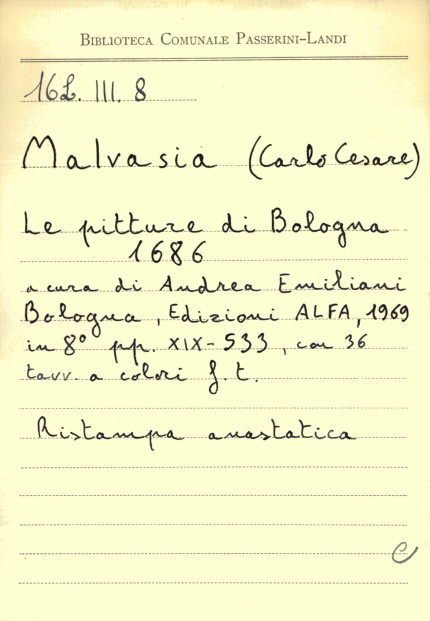 Biblioteca Comunale Passerini-Landi
16L. III. 8
Malvasia (Carlo Cesare)
Le pitture di Bologna
1686
a cura di Andrea Emiliani
Bologna, Edizioni ALFA, 1969
in 8° pp. XIX-533, con 36
tavv. a colori f. t.
Ristampa anastatica
C